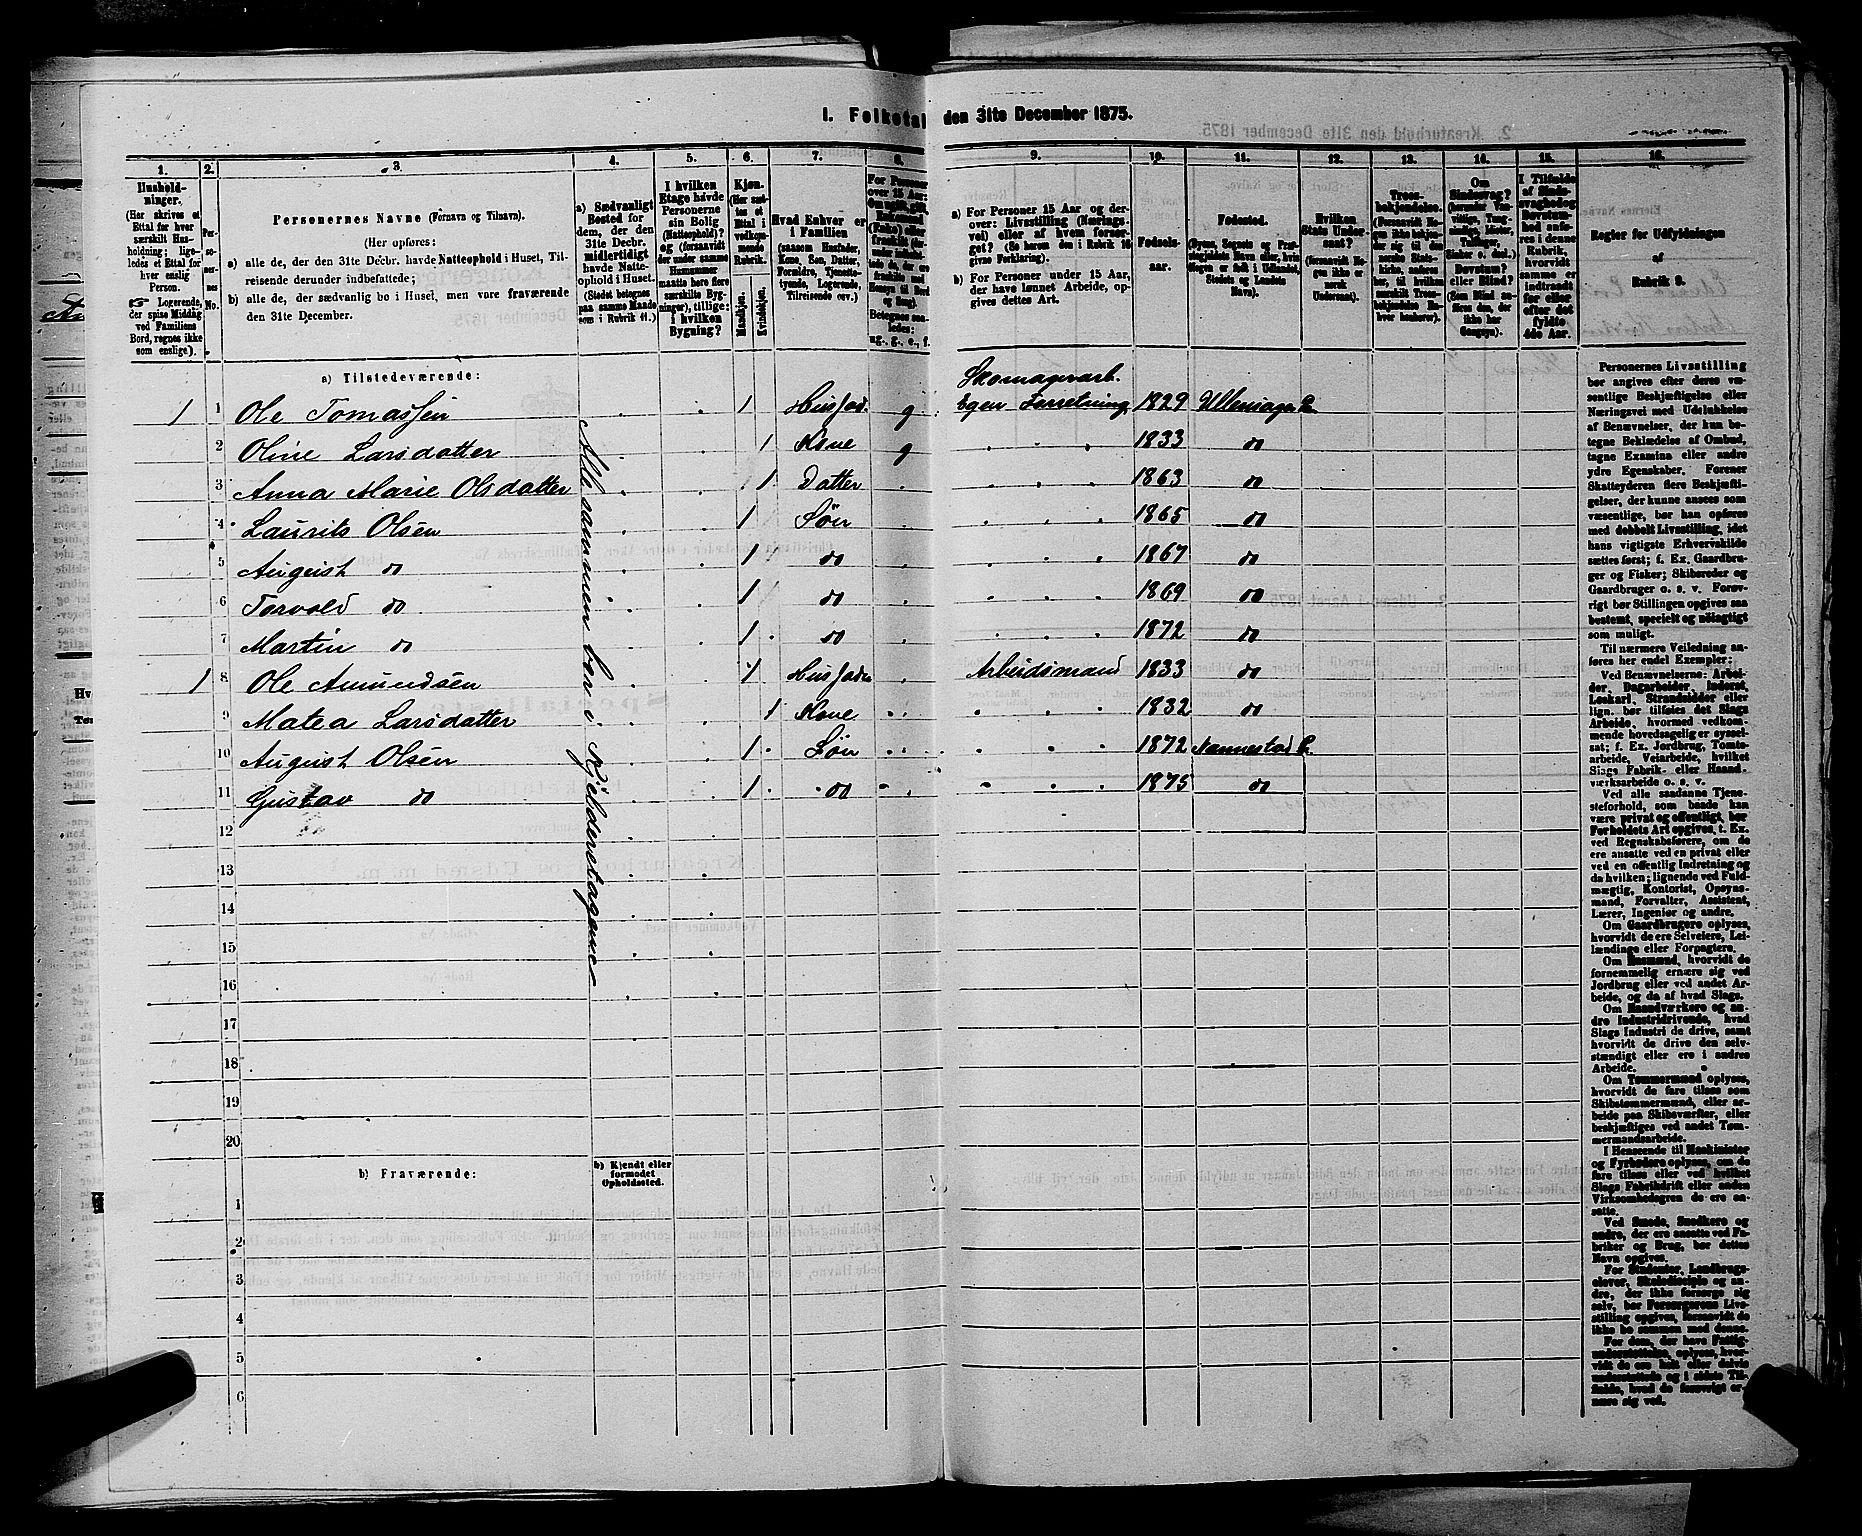 1. Folketal den 31te December 1875.
1.
2.
3.
4.
5.
6.
7.
8.
9.
10.
11.
12.
13.
14.
15.
16.
Hushold-
ninger.
(Her skrives et
Ettal for hver
særskilt Hus-
holdning; lige-
ledes et Ettal for
hver enslig
Person.
Logerende,
der spise Middag
ved Familiens
Bord, regnes ikke
som enslige).
Per-
so-
ner-
nes
No.
Personernes Navne (Fornavn og Tilnavn).
(Her opføres:
a) alle de, der den 31te Decbr. havde Natteophold i Huset, Til-
reisende derunder indbefattede;
b) alle de, der sædvanlig bo i Huset, men vare fraværende
den 31te December.
a) Sædvanligt
Bosted for
dem, der den
31te Decbr.
midlertidigt
havde Natte-
ophold i Huset.
(Stedet betegnes
paa samme Maade
som i Rubrik 11.)
I hvilken
Etage havde
Personerne
sin Bolig
(Natteophold)?
og (forsaavidt
der under samme
Husnummer
maatte høre flere
særskilte Byg-
ninger), tillige:
i hvilken
Bygning?
Kjøn.
(Her sæt-
tes et
Ettal i
vedkom-
mende
Rubrik.
Mandkjøn.
Kvindekjøn.
Hvad Enhver er
i Familien
(saasom Husfader,
Kone, Søn, Datter,
Forældre, Tjeneste-
tyende, Logerende,
Tilreisende osv.)
For Personer
over 15 Aar:
a) For Personer 15 Aar og der-
over: Livsstilling (Nærings-
vei) eller af hvem forsør-
get? (Se herom den i Rubrik 16
givne Forklaring).
b) For Personer under 15 Aar,
der have lønnet Arbeide, op-
gives dettes Art.
Fødsels-
aar.
Fødested.
(Byens, Sognets og Præ-
stegjeldets Navn eller, hvis
Nogen er født i Udlandet,
Stedets og Landets
Navn).
Hvilken
Stats Under-
saat?
(forsaavidt No-
gen ikke er
norsk
Undersaat).
Troes-
bekjendelse.
Om
Sindssvag?
I Tilfælde
af Sinds-
svaghed og
Døvstum-
hed anfø-
res i denne
Rubrik,
hvorvidt
samme er
indtraadt
før eller
efter det
fyldte
4de Aar.
Regler for Udfyldningen
af
Rubrik 9.
a) Tilstedeværende:
Skomagerarb.
1 1 Ole Tomassen 1 Husfad. g Egen Forretning 1829 Ullensager P.
2 Oline Larsdatter 1 Kone g 1833 do
3 Anna Marie Olsdatter 1 Datter 1863 do
4 Laurits Olsen 1 Søn 1865 do
5 August do 1 do 1867 do
6 Torvold do 1 do 1869 do
7 Martin do 1 do 1872 do
1 8 Ole Amundsen 1 Husfader Arbeidsmand 1833 do
9 Matea Larsdatter 1 Kone 1832 do
10 August Olsen 1 Søn 1872 Nannestad P.
11 Gustav do 1 do 1875 do
Allesammen bor i Kjelderetagene
12
13
14
15
16
17
18
19
20
b) Fraværende:
b) Kjendt eller
formodet
Opholdssted.
1
2
3
4
5
6
Personernes Livsstilling
bør angives efter deres væ-
sentlige Beskjæftigelse eller
Næringsvei med Udelukkelse
af Benævnelser, der kun be-
tegne Beklædelse af Ombud,
tagne Examina eller andre
ydre Egenskaber. Forener
Skatteyderen flere Beskjæfti-
gelser, der kunne ansees som
væsentlige, bør han opføres
med dobbelt Livsstilling, idet
hans vigtigste Erhvervskilde
sættes først; f. Ex. Gaardbru-
ger og Fisker; Skibsreder og
Gaardbruger o. s. v. Forøv-
rigt bør Stillingen opgives saa
bestemt, specielt og nøiagtigt
som muligt.
Til nærmere Veiledning an-
føres her endel Exempler:
Ved Benævnelserne: Arbei-
der, Dagarbeider, Inderst,
Løskarl, Strandsidder eller
lign. bør tilføies det Slags
Arbeide, hvormed vedkom-
mende hovedsagelig er syssel-
sat; f. Ex. Jordbrug, Tomte-
arbeide, Veiarbeide, hvilket
Slags Fabrik- eller Haand-
værksarbeide o. s. v.
Ved alle saadanne Tjene-
steforhold, som baade kan
være privat og offentligt, bør
Forholdets Art opgives, t. Ex.
ved Regnskabsførere, om de
ere ansatte ved en privat eller
ved en offentlig Indretning og
da hvilken; lignende ved Fuld-
mægtig, Kontorist, Opsyns-
mand, Forvalter, Assistent,
Lærer, Ingeniør og andre.
Om Gaardbrugere oplyses,
hvorvidt de ere Selveiere, Lei-
lændinge eller Forpagtere.
Om Husmænd, hvorvidt de
fornemmelig ernære sig ved
Jordbrug eller ved andet Ar-
beide, og da af hvad Slags.
Om Haandværkere og an-
dre Industridrivende, hvad
Slags Industri de drive, samt
hvorvidt de drive den selv-
stændigt eller ere i andres
Arbeide.
Om Tømmermænd oplyses,
hvorvidt de fare tilsøs som
Skibstømmermænd, eller ar-
beide paa Skibsværfter, eller
beskjæftiges ved andet Tøm-
mermandsarbeide.
I Henseende til Maskinister
og Fyrbødere oplyses, om de
fare tilsøs eller ved hvilket
Slags Fabrikdrift eller anden
Virksomhedsgren de ere an-
satte.
Ved Smede, Snedkere og
andre, der ere ansatte ved Fa-
briker og Brug, bør dettes
Navn opgives.
For Studenter, Landbrugs-
elever, Skoledisciple og an-
dre, der ikke forsørge sig
selv, bør Forsørgerens Liv-
stilling opgives, forsaavidt de
ikke bo sammen med denne.
For dem, der have Fattig-
understøttelse, oplyses, hvor-
vidt de ere helt eller delvis
understøttede og i sidste Til-
fælde, hvad de forøvrigt er-
nære sig ved.